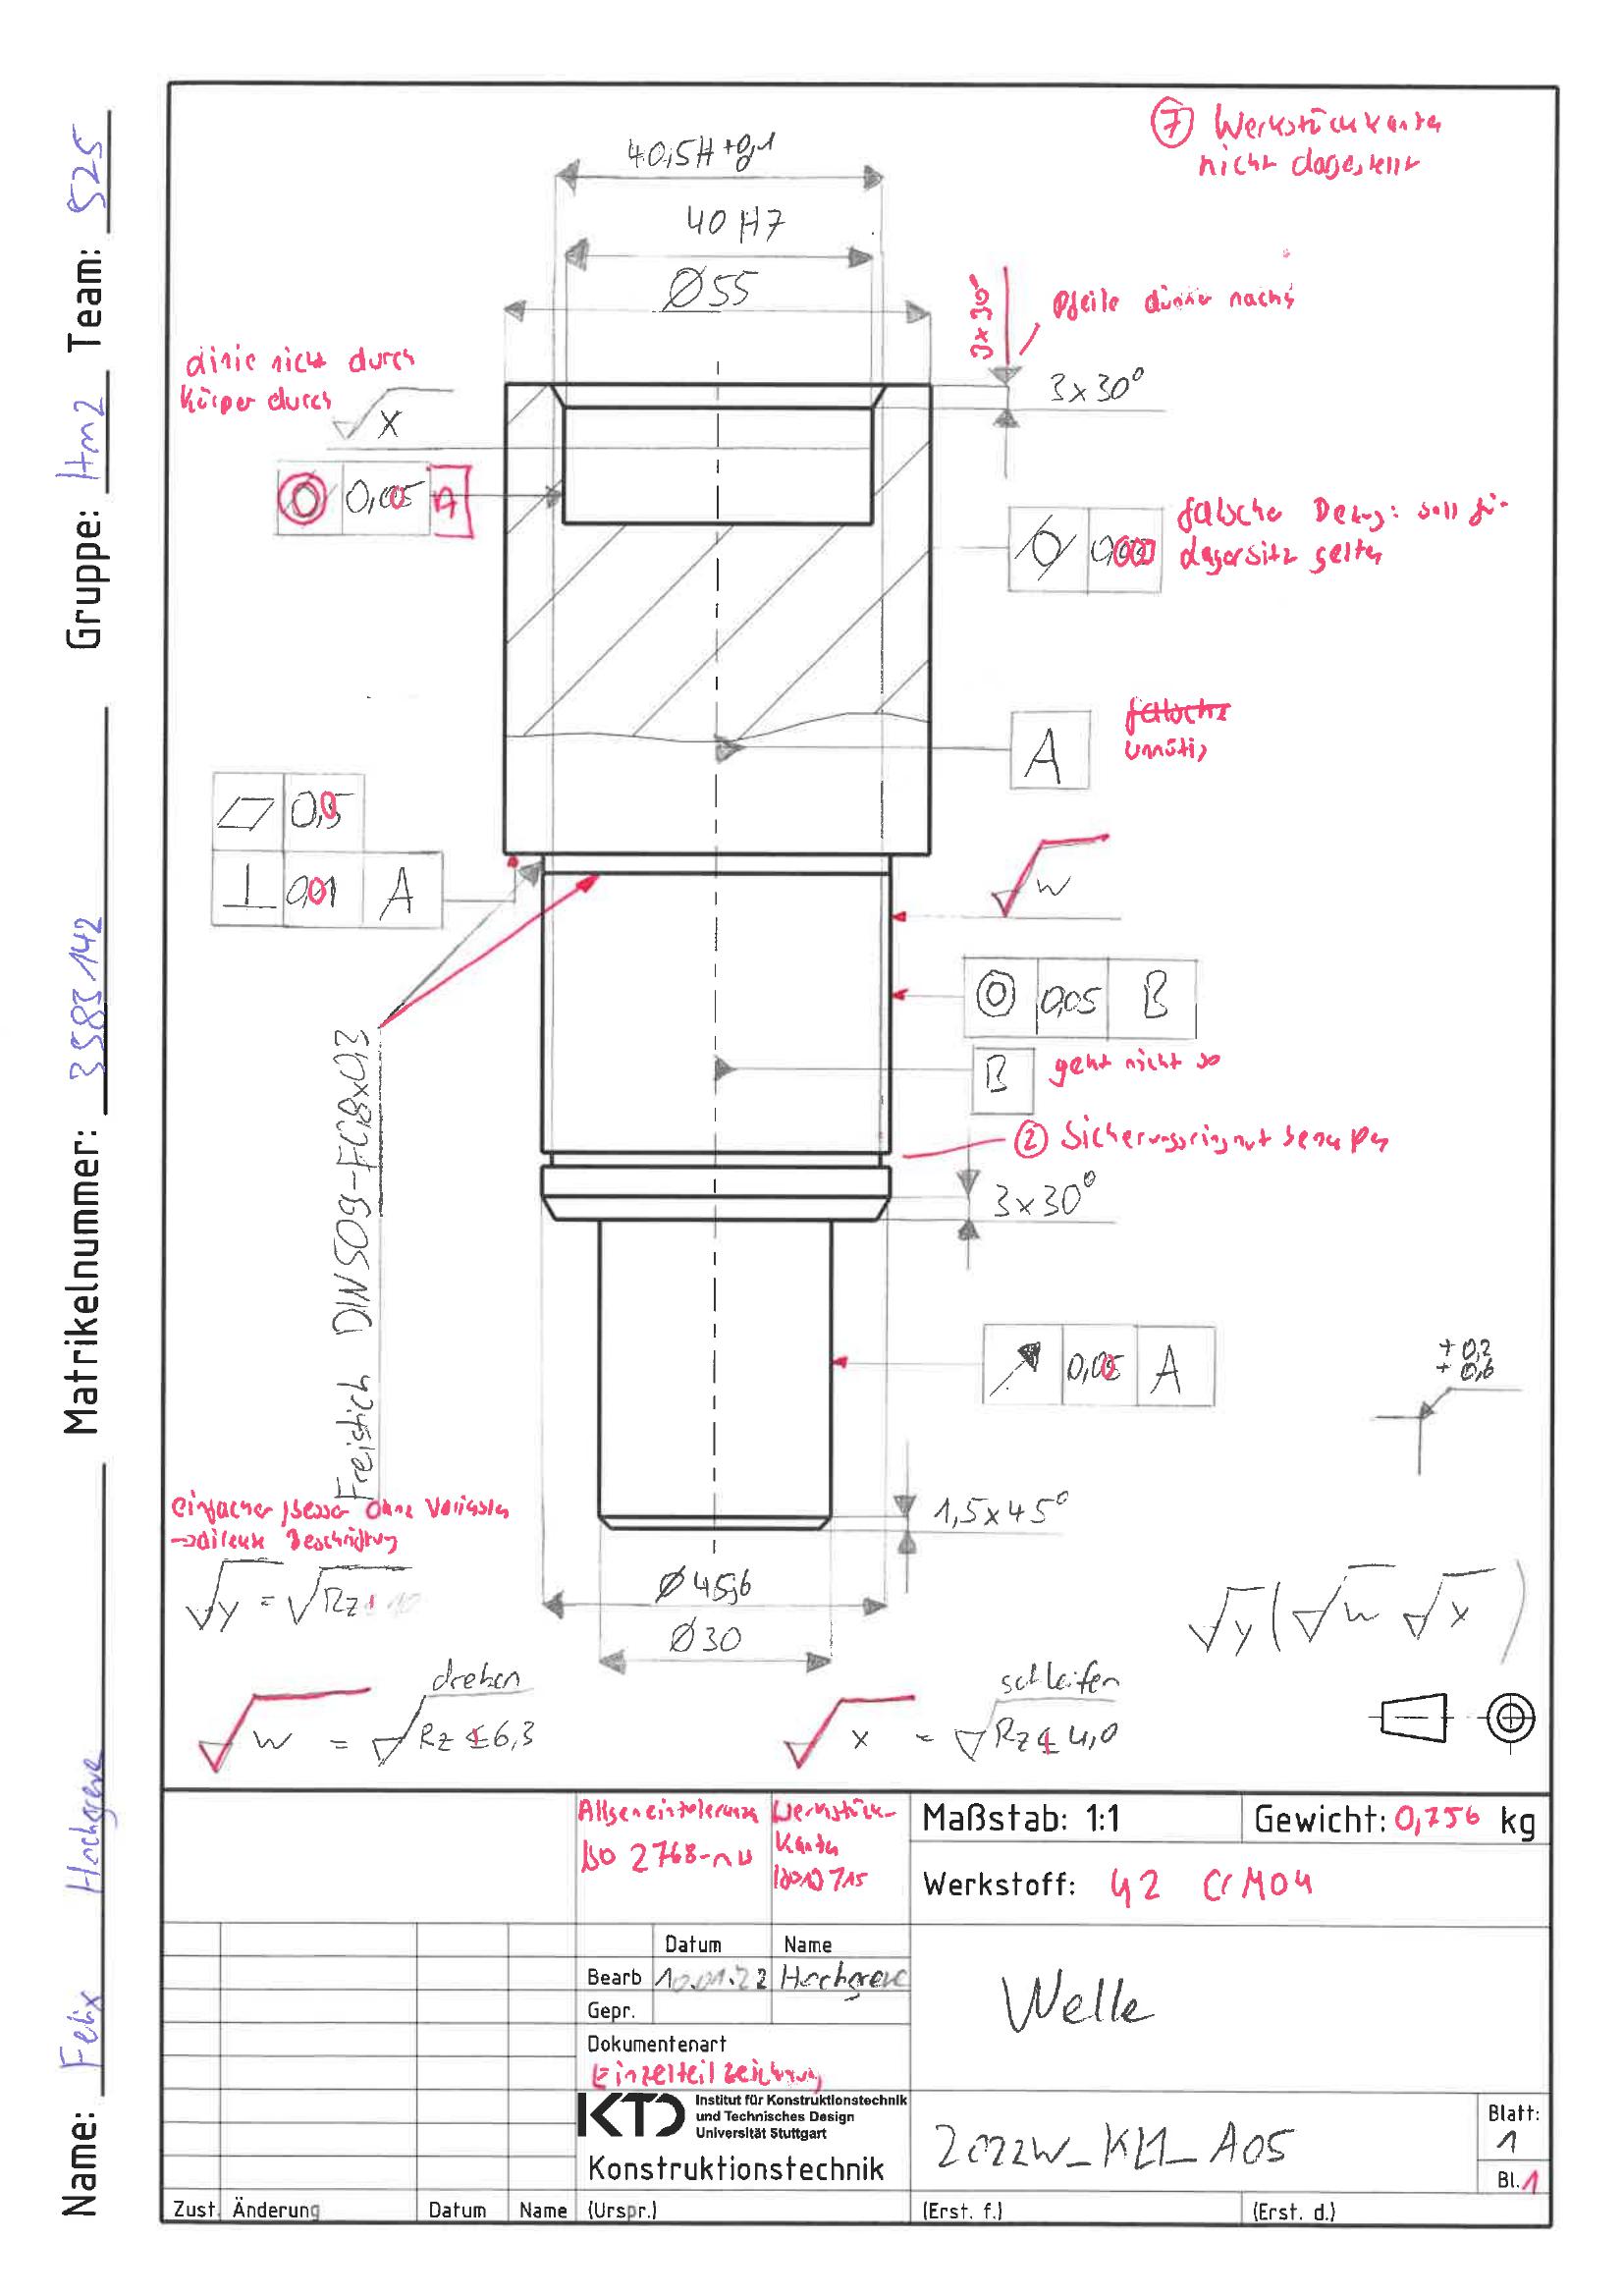 Name: Felix Hochgreve Matrikelnummer: 3583142 Gruppe: Hm2 Team: S25
⑦ Werkstückkanten
nicht dagestellt
40,5H +0,1
40 H7
Ø55
3x30°
Pfeile dünner nachs
3x30°
Linie nicht durch
Körper durch
x
0,005 A
falscher Bezug: soll für
Lagersitz gelten
A
falsche
unnötig
0,05
0,01 A
w
0,05 B
B geht nicht so
② Sicherungsringnut bemaßen
3x30°
Freistich DIN 509-F0,8x0,3
0,05 A
+0,2
+0,6
1,5x45°
einfacher/besser ohne Variablen
→direkte Beschriftung
y = Rz 10
Ø45j6
Ø30
y ( w x )
w = drehen Rz 6,3
x = schleifen Rz 4,0
Allgemeintoleranz
ISO 2768-mH
Werkstück-
Kanten
ISO 13715
Maßstab: 1:1
Gewicht: 0,756 kg
Werkstoff: 42 CrMo4
Datum Name
Bearb 10.01.22 Hochgreve
Gepr.
Welle
Dokumentenart
Einzelteilzeichnung
KTD Institut für Konstruktionstechnik
und Technisches Design
Universität Stuttgart
Konstruktionstechnik
2022W_KL1_A05
Blatt:
1
Bl. 1
Zust. Änderung Datum Name (Urspr.) (Erst. f.) (Erst. d.)